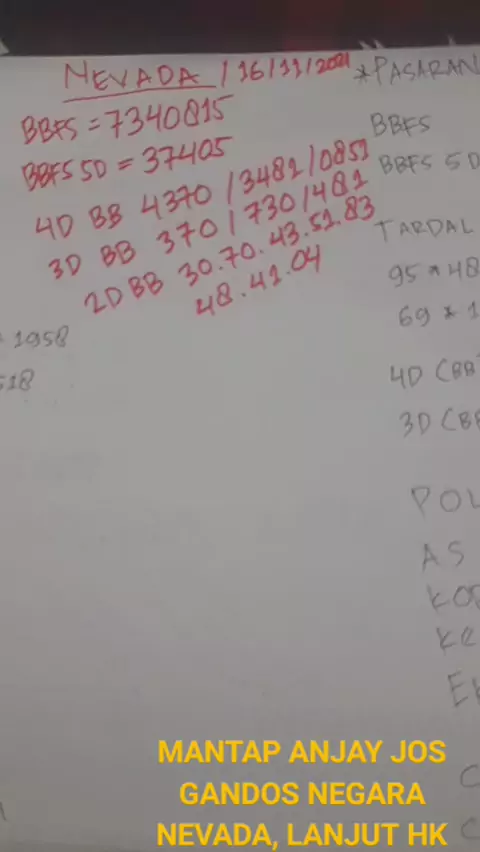 NEVADA / 16/11/2021
BBFS = 7340815
BBFS 5D = 37405
4D BB 4370 / 3481 / 0851
3D BB 370 / 730 / 481
2D BB 30.70.43.51.83
48.41.04
1958
518
*PASARAN
BBFS
BBFS 5D
TARDAL
95 * 48
69 * 1
4D (BB
3D (BB
POL
AS
KOP
KE
MANTAP ANJAY JOS
GANDOS NEGARA
NEVADA, LANJUT HK